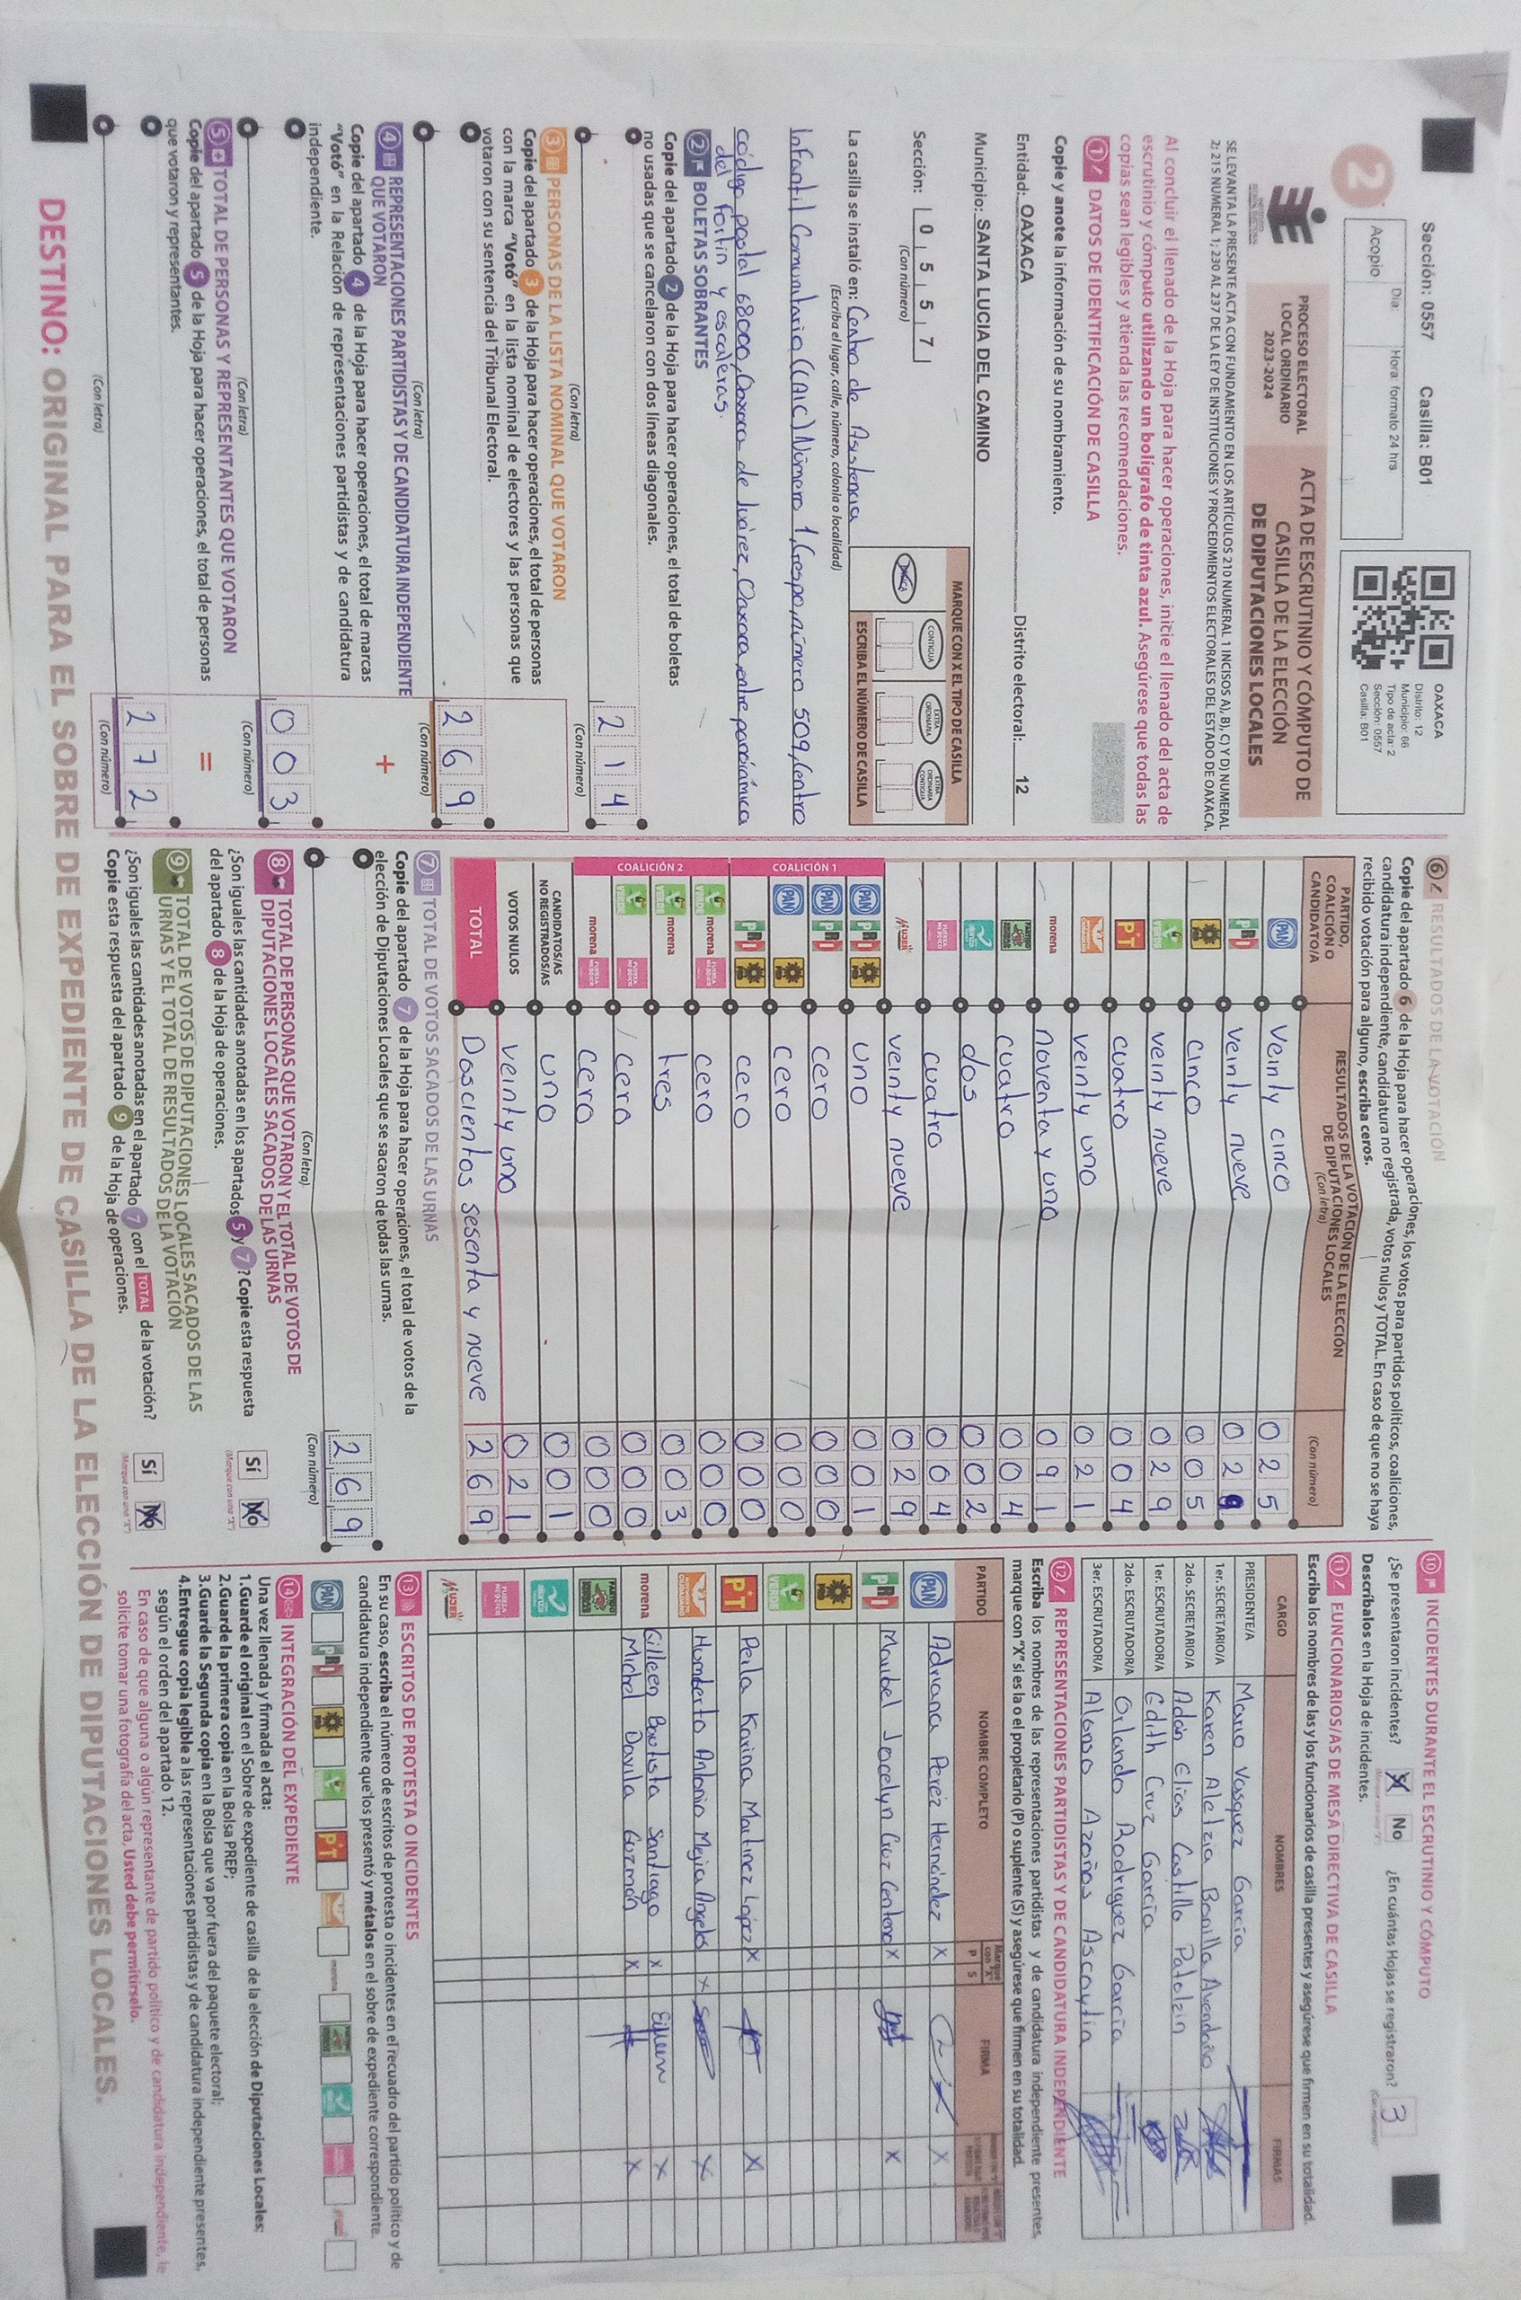 Sección: 0557 Casilla: B01
Día: Hora: formato 24 hrs
Acopio
2
OAXACA
Distrito: 12
Municipio: 66
Tipo de acta: 2
Sección: 0557
Casilla: B01
PROCESO ELECTORAL
LOCAL ORDINARIO
2023-2024
ACTA DE ESCRUTINIO Y CÓMPUTO DE
CASILLA DE LA ELECCIÓN
DE DIPUTACIONES LOCALES
SE LEVANTA LA PRESENTE ACTA CON FUNDAMENTO EN LOS ARTÍCULOS 210 NUMERAL 1 INCISOS A), B), C) Y D) NUMERAL
2; 215 NUMERAL 1; 230 AL 237 DE LA LEY DE INSTITUCIONES Y PROCEDIMIENTOS ELECTORALES DEL ESTADO DE OAXACA.
Al concluir el llenado de la Hoja para hacer operaciones, inicie el llenado del acta de
escrutinio y cómputo utilizando un bolígrafo de tinta azul. Asegúrese que todas las
copias sean legibles y atienda las recomendaciones.
1 DATOS DE IDENTIFICACIÓN DE CASILLA
Copie y anote la información de su nombramiento.
Entidad: OAXACA Distrito electoral: 12
Municipio: SANTA LUCIA DEL CAMINO
Sección: 0 5 5 7
(Con número)
MARQUE CON X EL TIPO DE CASILLA
CONTIGUA
EXTRA ORDINARIA
EXTRA ORDINARIA CONTIGUA
ESCRIBA EL NÚMERO DE CASILLA
La casilla se instaló en: Centro de Asistencia
(Escriba el lugar, calle, número, colonia o localidad)
Infantil Comunitario (CAIC) Número 1, Crespo, número 509, Centro
código postal 68000, Oaxaca de Juárez, Oaxaca, entre panorámica
del fortin y escaleras.
2 BOLETAS SOBRANTES
Copie del apartado 2 de la Hoja para hacer operaciones, el total de boletas
no usadas que se cancelaron con dos líneas diagonales.
2 1 4
(Con letra) (Con número)
3 PERSONAS DE LA LISTA NOMINAL QUE VOTARON
Copie del apartado 3 de la Hoja para hacer operaciones, el total de personas
con la marca "Votó" en la lista nominal de electores y las personas que
votaron con su sentencia del Tribunal Electoral.
2 6 9
(Con letra) (Con número)
4 REPRESENTACIONES PARTIDISTAS Y DE CANDIDATURA INDEPENDIENTE
QUE VOTARON
+
Copie del apartado 4 de la Hoja para hacer operaciones, el total de marcas
"Votó" en la Relación de representaciones partidistas y de candidatura
independiente.
0 0 3
(Con letra) (Con número)
5 TOTAL DE PERSONAS Y REPRESENTANTES QUE VOTARON
=
Copie del apartado 5 de la Hoja para hacer operaciones, el total de personas
que votaron y representantes.
2 7 2
(Con letra) (Con número)
6 RESULTADOS DE LA VOTACIÓN
Copie del apartado 6 de la Hoja para hacer operaciones, los votos para partidos políticos, coaliciones,
candidatura independiente, candidatura no registrada, votos nulos y TOTAL. En caso de que no se haya
recibido votación para alguno, escriba ceros.
PARTIDO, COALICIÓN O CANDIDATO/A
RESULTADOS DE LA VOTACIÓN DE LA ELECCIÓN DE DIPUTACIONES LOCALES
(Con letra) (Con número)
PAN Veinty cinco 0 2 5
PRI Veinty nueve 0 2 9
PRD cinco 0 0 5
VERDE veinty nueve 0 2 9
PT cuatro 0 0 4
veinty uno 0 2 1
morena noventa y uno 0 9 1
cuatro 0 0 4
dos 0 0 2
cuatro 0 0 4
MUJER veinty nueve 0 2 9
COALICIÓN 1
PAN PRI PRD uno 0 0 1
PAN PRI cero 0 0 0
PAN PRD cero 0 0 0
PRI PRD cero 0 0 0
COALICIÓN 2
VERDE morena cero 0 0 0
VERDE morena tres 0 0 3
VERDE cero 0 0 0
morena cero 0 0 0
CANDIDATOS/AS NO REGISTRADOS/AS uno 0 0 1
VOTOS NULOS veinty uno 0 2 1
TOTAL Doscientos sesenta y nueve 2 6 9
7 TOTAL DE VOTOS SACADOS DE LAS URNAS
Copie del apartado 7 de la Hoja para hacer operaciones, el total de votos de la
elección de Diputaciones Locales que se sacaron de todas las urnas.
2 6 9
(Con letra) (Con número)
8 TOTAL DE PERSONAS QUE VOTARON Y EL TOTAL DE VOTOS DE
DIPUTACIONES LOCALES SACADOS DE LAS URNAS
¿Son iguales las cantidades anotadas en los apartados 5 y 7? Copie esta respuesta
del apartado 8 de la Hoja de operaciones.
Sí No
9 TOTAL DE VOTOS DE DIPUTACIONES LOCALES SACADOS DE LAS
URNAS Y EL TOTAL DE RESULTADOS DE LA VOTACIÓN
¿Son iguales las cantidades anotadas en el apartado 7 con el TOTAL de la votación?
Copie esta respuesta del apartado 9 de la Hoja de operaciones.
Sí No
10 INCIDENTES DURANTE EL ESCRUTINIO Y CÓMPUTO
¿Se presentaron incidentes? X No ¿En cuántas Hojas se registraron? 3
Descríbalos en la Hoja de incidentes.
11 FUNCIONARIOS/AS DE MESA DIRECTIVA DE CASILLA
Escriba los nombres de las y los funcionarios de casilla presentes y asegúrese que firmen en su totalidad.
CARGO NOMBRES FIRMAS
PRESIDENTE/A Mario Vasquez García
1er. SECRETARIO/A Karen Aletzia Bonilla Avendaño
2do. SECRETARIO/A Adán Elias Castillo Patolzin
1er. ESCRUTADOR/A Edith Cruz García
2do. ESCRUTADOR/A Orlando Rodriguez García
3er. ESCRUTADOR/A Alonso Azoños Ascaytia
12 REPRESENTACIONES PARTIDISTAS Y DE CANDIDATURA INDEPENDIENTE
Escriba los nombres de las representaciones partidistas y de candidatura independiente presentes,
marque con "X" si es la o el propietario (P) o suplente (S) y asegúrese que firmen en su totalidad.
PARTIDO NOMBRE COMPLETO P S FIRMA
PAN Adriana Peréz Hernández X X
PRI Maribel Jocelyn Cruz Centeno X X
PRD
VERDE
PT Perla Karina Martinez López X X
Humberto Antonio Mejia Angeles X X
morena Eilleen Bautista Santiago X Eilleen X
Michel Davila Guzmán X X
MUJER
13 ESCRITOS DE PROTESTA O INCIDENTES
En su caso, escriba el número de escritos de protesta o incidentes en el recuadro del partido político y de
candidatura independiente que los presentó y métalos en el sobre de expediente correspondiente.
PAN PRI PRD VERDE PT morena
14 INTEGRACIÓN DEL EXPEDIENTE
Una vez llenada y firmada el acta:
1.Guarde el original en el Sobre de expediente de casilla de la elección de Diputaciones Locales;
2.Guarde la primera copia en la Bolsa PREP;
3.Guarde la Segunda copia en la Bolsa que va por fuera del paquete electoral;
4.Entregue copia legible a las representaciones partidistas y de candidatura independiente presentes,
según el orden del apartado 12.
En caso de que alguna o algún representante de partido político y de candidatura independiente, le
solicite tomar una fotografía del acta, Usted debe permitírselo.
DESTINO: ORIGINAL PARA EL SOBRE DE EXPEDIENTE DE CASILLA DE LA ELECCIÓN DE DIPUTACIONES LOCALES.